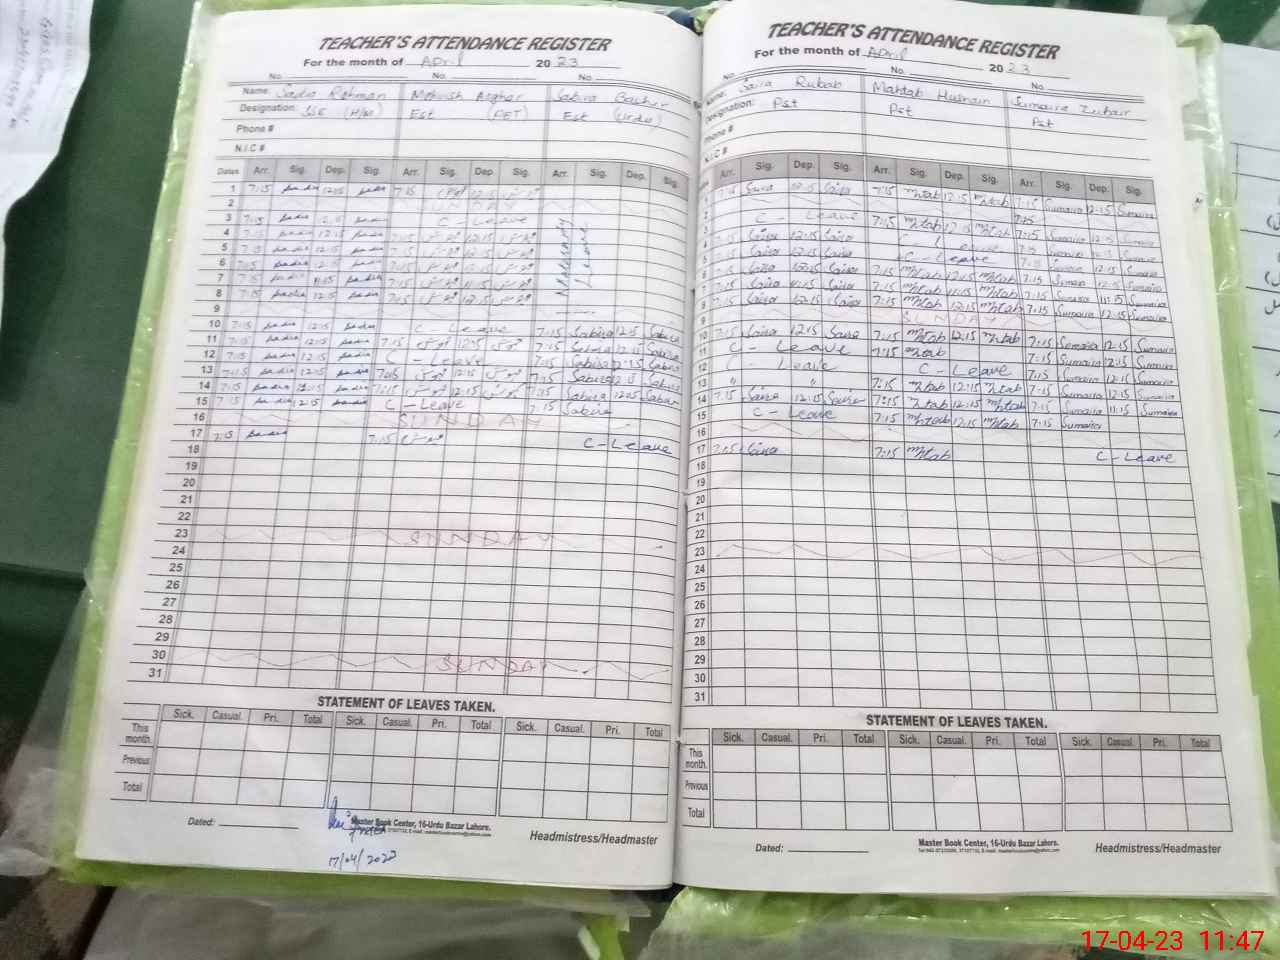 TEACHER'S ATTENDANCE REGISTER
For the month of April 2023
No. No. No.
Name: Sadia Rehman Mehvish Asghar Sabira Bashir
Designation: SSE (H/M) Est (PET) Est (Urdu)
Phone #
N.I.C #
Dates Arr. Sig. Dep. Sig. Arr. Sig. Dep. Sig. Arr. Sig. Dep. Sig.
1 7:15 Sadia 12:15 Sadia 7:15 12:15
2 SUNDAY
3 7:15 Sadia 12:15 Sadia C - Leave
4 7:15 Sadia 12:15 Sadia 7:15 12:15
5 7:15 Sadia 12:15 Sadia 7:15 12:15
6 7:15 Sadia 12:15 Sadia 7:15 12:15
7 7:15 Sadia 11:15 Sadia 7:15 11:15
8 7:15 Sadia 12:15 Sadia 7:15 12:15
Leave
9
10 7:15 Sadia 12:15 Sadia C - Leave 7:15 Sabira 12:15 Sabira
11 7:15 Sadia 12:15 Sadia 7:15 12:15 7:15 Sabira 12:15 Sabira
12 7:15 Sadia 12:15 Sadia C - Leave 7:15 Sabira 12:15 Sabira
13 7:15 Sadia 12:15 Sadia 7:15 12:15 7:15 Sabira 12:15 Sabira
14 7:15 Sadia Sadia 7:15 7:15 Sabira Sabira
15 7:15 Sadia 12:15 Sadia C - Leave 7:15 Sabira
16 SUNDAY
17 7:15 Sadia 7:15 C - Leave
18
19
20
21
22
23 SUNDAY
24
25
26
27
28
29
30 SUNDAY
31
STATEMENT OF LEAVES TAKEN.
Sick. Casual. Pri. Total Sick. Casual. Pri. Total Sick. Casual. Pri. Total
This month.
Previous
Total
Dated:
Master Book Center, 16-Urdu Bazar Lahore.
Headmistress/Headmaster
17/04/2023
TEACHER'S ATTENDANCE REGISTER
For the month of April 2023
No. No. No.
Name: Saira Rubab Mahtab Husnain Sumaira Zuhair
Designation: Pst Pst Pst
Phone #
N.I.C #
Sig. Dep. Sig. Arr. Sig. Dep. Sig. Arr. Sig. Dep. Sig.
1 7:15 Saira 12:15 Saira 7:15 Mhtab 12:15 Mhtab 7:15 Sumaira 12:15 Sumaira
2
3 C - Leave 7:15 Mhtab 12:15 Mhtab 7:15 Sumaira 12:15 Sumaira
4 7:15 Saira 12:15 Saira C - Leave 7:15 Sumaira 12:15 Sumaira
5 7:15 Saira 12:15 Saira C - Leave 7:15 Sumaira 12:15 Sumaira
6 7:15 Saira 12:15 Saira 7:15 Mhtab 12:15 Mhtab 7:15 Sumaira 12:15 Sumaira
7 7:15 Saira 11:15 Saira 7:15 Mhtab 11:15 Mhtab 7:15 Sumaira 11:15 Sumaira
8 7:15 Saira 12:15 Saira 7:15 Mhtab 12:15 Mhtab 7:15 Sumaira 12:15 Sumaira
9 SUNDAY
10 7:15 Saira 12:15 Saira 7:15 Mhtab 12:15 Mhtab 7:15 Sumaira 12:15 Sumaira
11 C - Leave 7:15 Mhtab 7:15 Sumaira 12:15 Sumaira
12 C - Leave C - Leave 7:15 Sumaira 12:15 Sumaira
13 " " 7:15 Mhtab 12:15 Mhtab 7:15 Sumaira 12:15 Sumaira
14 7:15 Saira 12:15 Saira 7:15 Mhtab 12:15 Mhtab 7:15 Sumaira 11:15 Sumaira
15 C - Leave 7:15 Mhtab 12:15 Mhtab 7:15 Sumaira
16
17 7:15 Saira 7:15 Mhtab C - Leave
18
19
20
21
22
23
24
25
26
27
28
29
30
31
STATEMENT OF LEAVES TAKEN.
Sick. Casual. Pri. Total Sick. Casual. Pri. Total Sick. Casual. Pri. Total
This month.
Previous
Total
Dated:
Master Book Center, 16-Urdu Bazar Lahore.
Headmistress/Headmaster
17-04-23 11:47